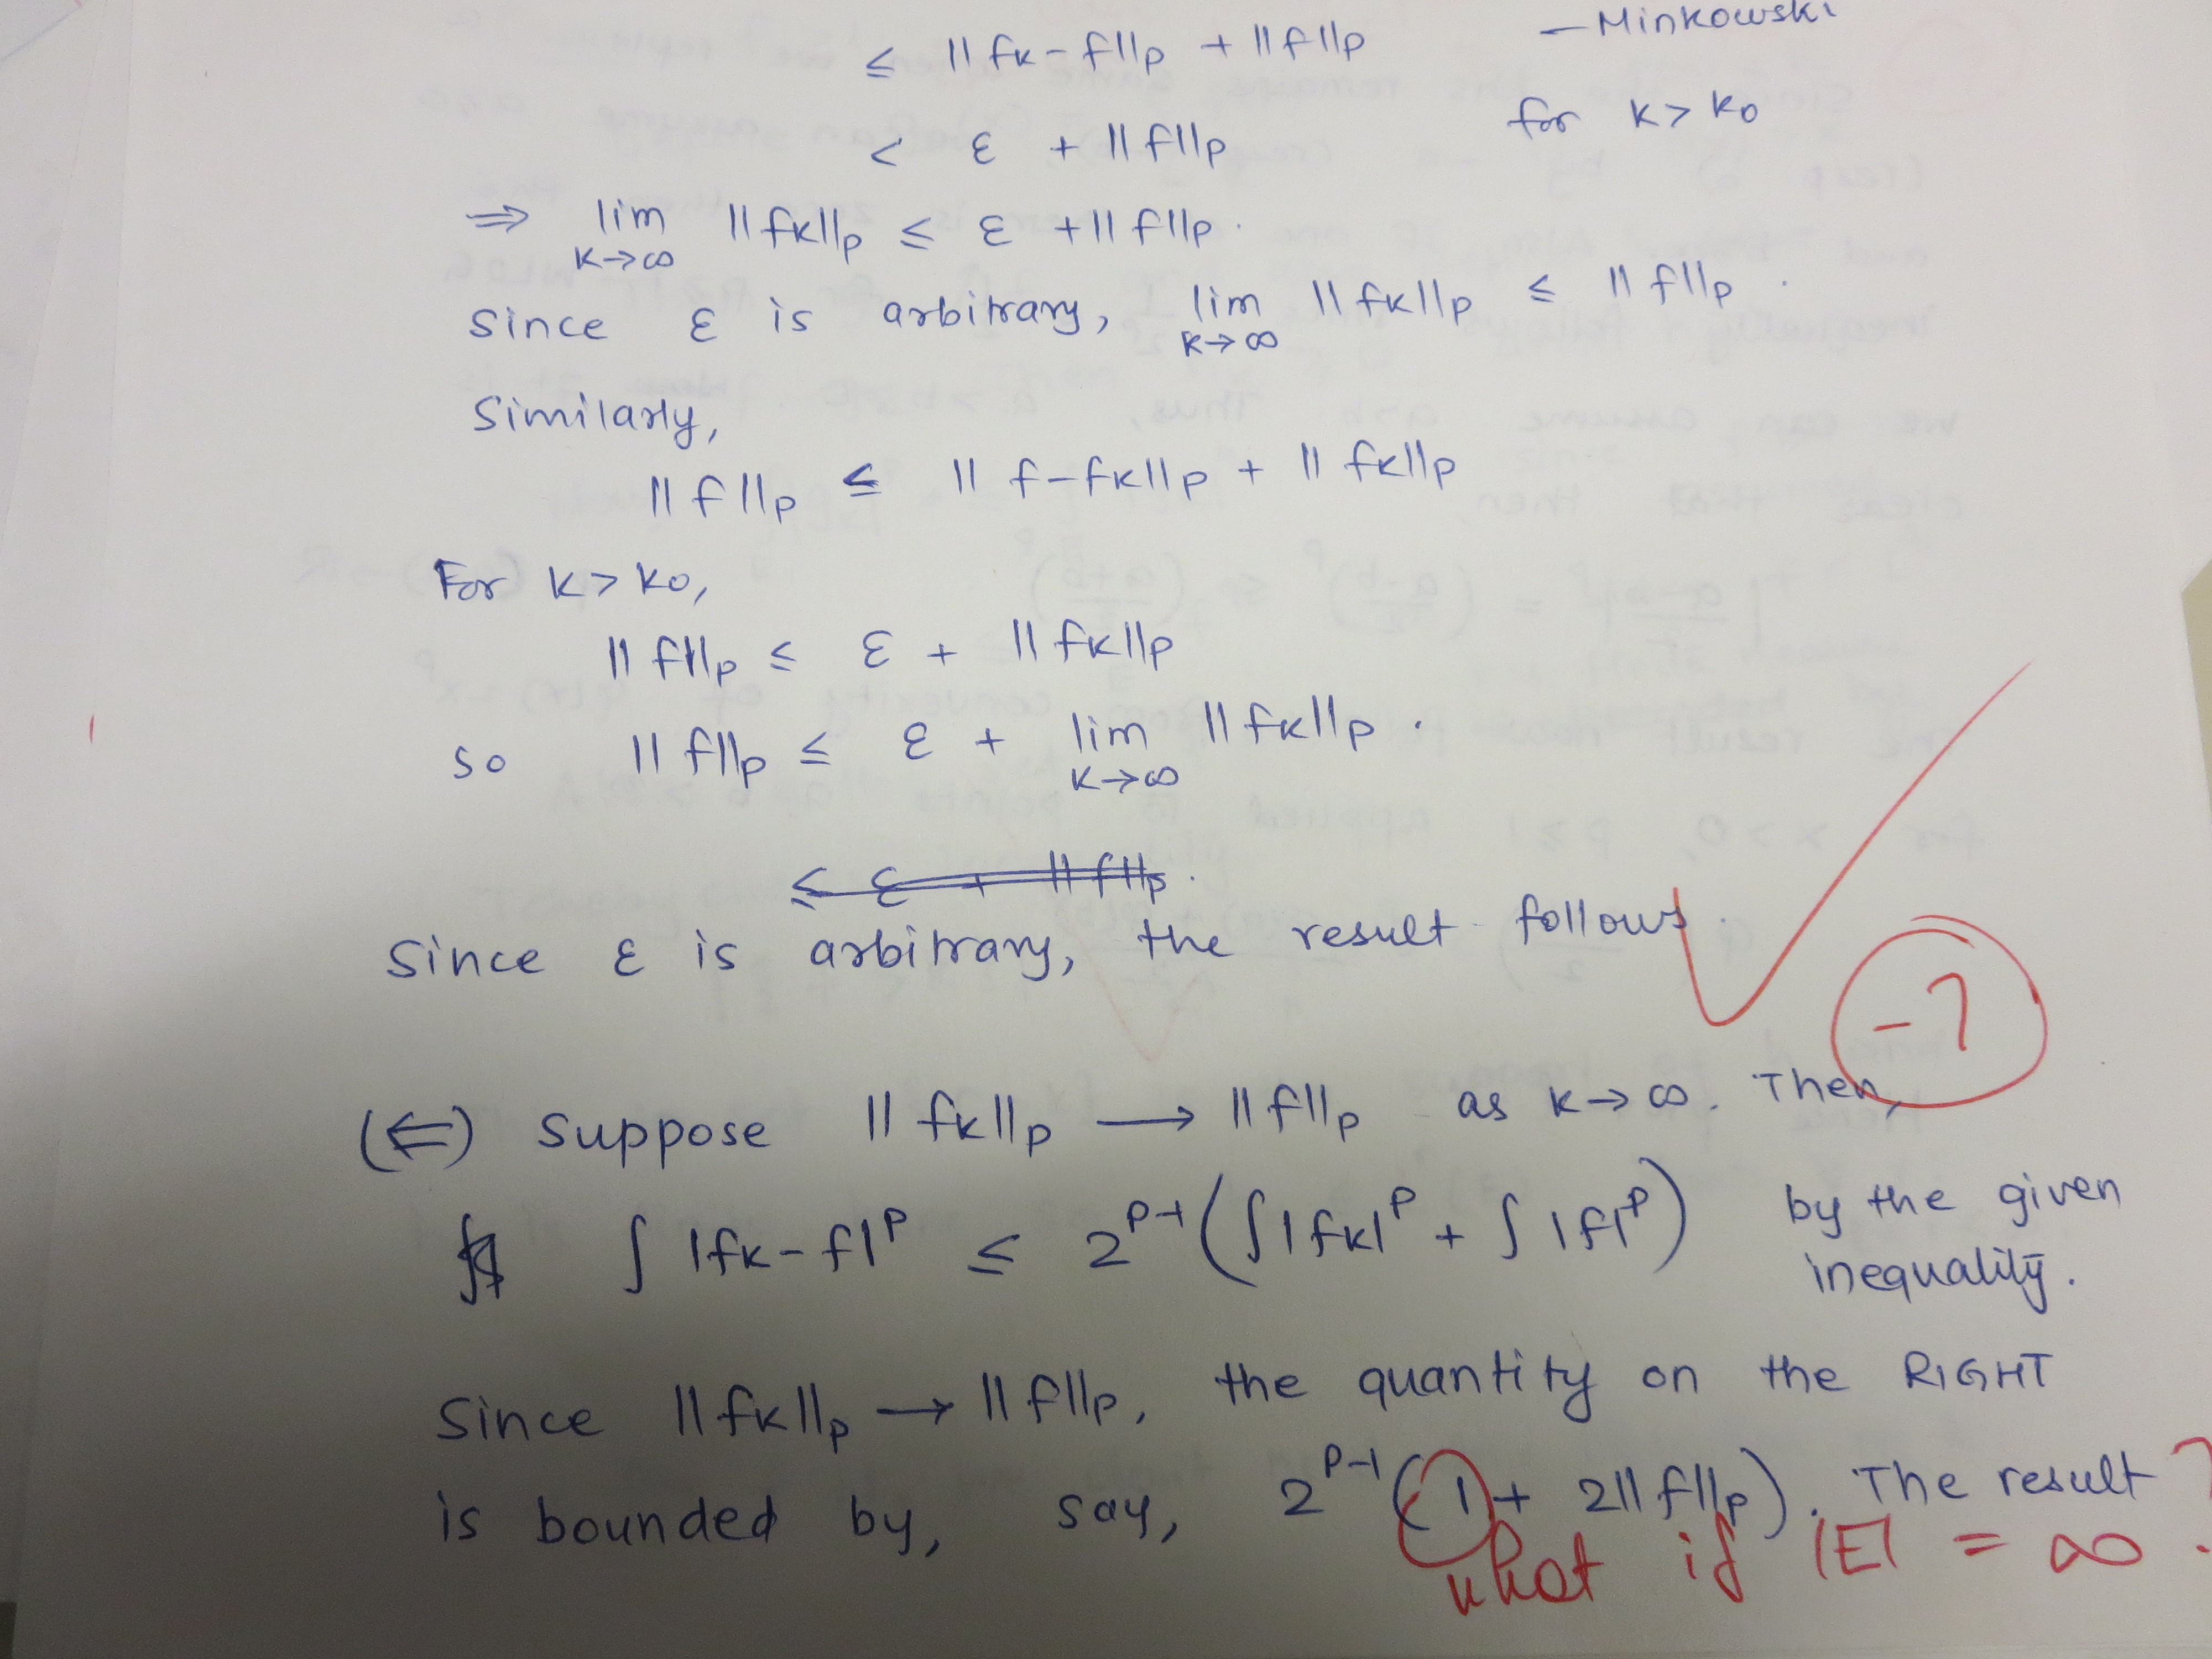 ≤ || fk - f||p + || f||p — Minkowski
< ε + || f||p for k > k0
⇒ lim k→∞ || fk||p ≤ ε + || f||p.
Since ε is arbitrary, lim k→∞ || fk||p ≤ || f||p.
Similarly,
|| f ||p ≤ || f - fk||p + || fk||p
For k > k0,
|| f||p ≤ ε + || fk||p
so || f||p ≤ ε + lim k→∞ || fk||p.
≤ ε + || f||p.
Since ε is arbitrary, the result follows.
(⇐) suppose || fk||p → || f||p as k → ∞. Then,
-7
∫ |fk - f|^p ≤ 2^p-1 (∫ |fk|^p + ∫ |f|^p) by the given
inequality.
Since || fk||p → || f||p, the quantity on the RIGHT
is bounded by, say, 2^p-1 (1 + 2|| f||p). The result
what if |E| = ∞ ?